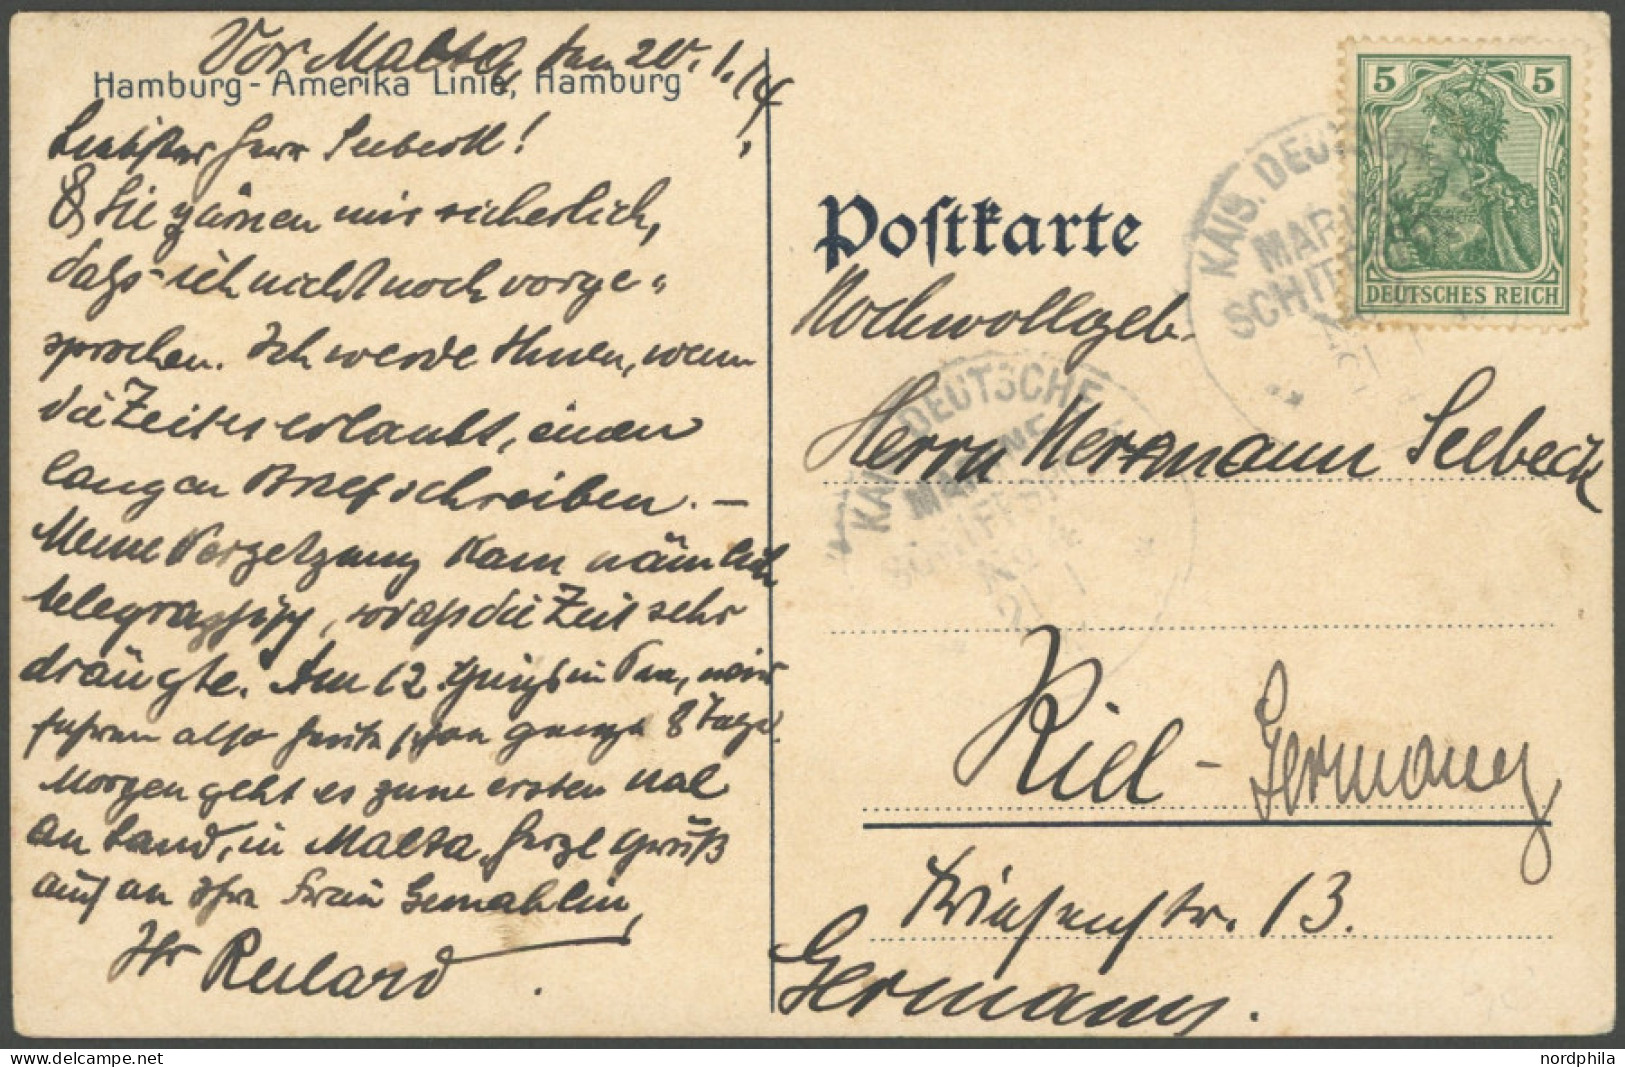 Vor Malta, den 20.1.14
Hamburg-Amerika Linie, Hamburg
Herr Seebeck!
Sie zürnen mir sicherlich,
dass ich nicht noch vorge-
sprochen. Ich werde Ihnen, wenn
die Zeit es erlaubt, einen
langen Brief schreiben. –
Meine Versetzung kam nämlich
telegraphisch, sodass die Zeit sehr
drängte. Am 12. ging's in See, wir
fuhren also heute schon ganze 8 Tage.
Morgen geht es zum ersten Mal
an Land, in Malta. Herzl Gruß
auch an Ihre Frau Gemahlin,
Ihr
Postkarte
Hochwollgeb.
Herrn Hermann Seebeck
Kiel - Germany
13.
Germany.
5 5
DEUTSCHES REICH
KAIS. DEU
MAR
SCHIFF
KAIS. DEUTSCHE
MARINE-
SCHIFFSPOST
No
21 1
nordphila